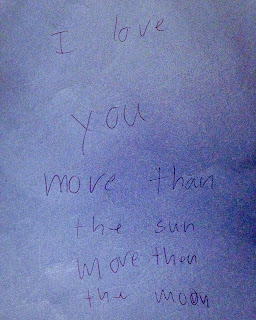 I love
you
more than
the sun
more then
the moon